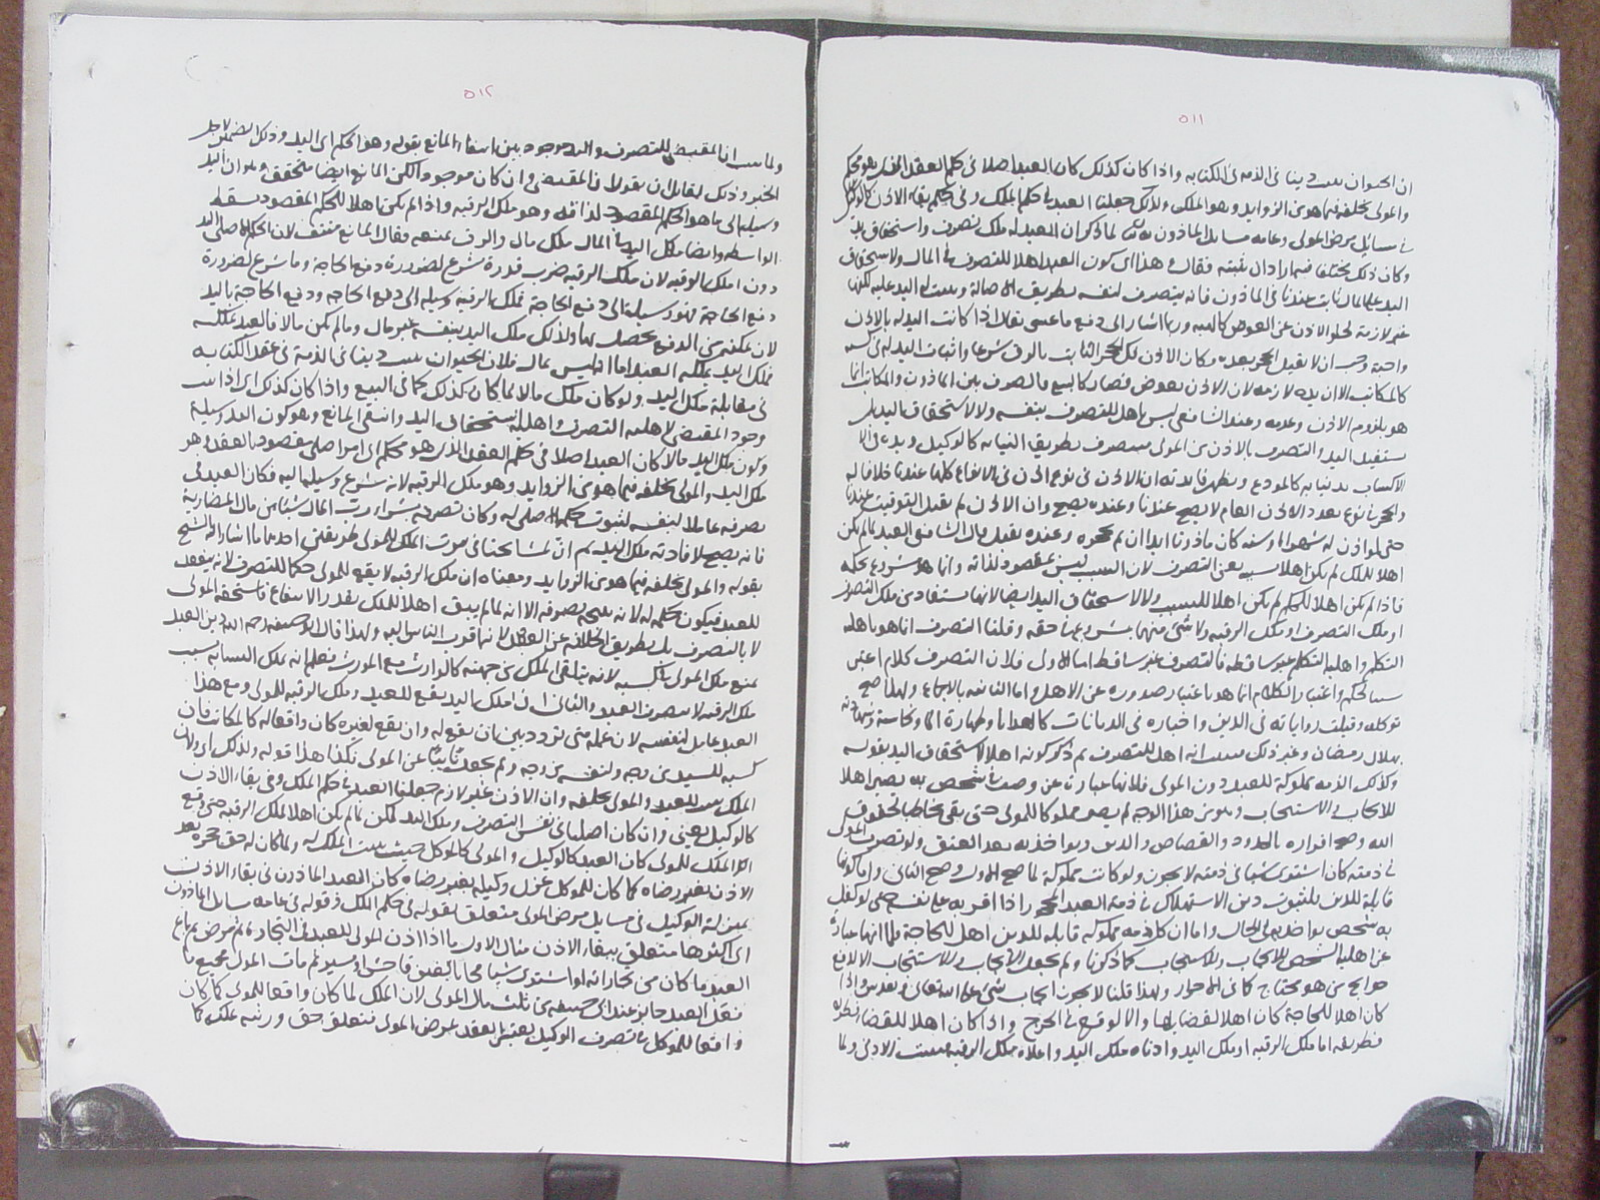 ٥١١
ان الحيوان يثبت دينا في الذمة في الكتابة واذا كان كذلك كان العبد اصلا في حكم العقد الذي هو محكم
والمولى يخلفه فيما هو من الزوايد وهو الملك ولذلك جعلنا العبد في حكم الملك وفي حكم بقاء الاذن كالوكيل
في مسائل مرض المولى وعامة مسائل الماذون لما ذكر ان العبد له ملك تصرف واستحقاق يد
وكان ذلك مختلفا فيه اراد ان يثبته فقال وهذا اي كون العبد اهلا للتصرف في المال ولاستحقاق
اليد على المال ثابت عندنا في الماذون فانه يتصرف لنفسه بطريق الاصالة وثبت له اليد عليه لكنها
غير لازمة لخلو الاذن عن العوض كالهبة وربما اشار الى دفع ما عسى يقال اذا كانت اليد له بالاذن
واجبة وجب ان لا يقبل الحجر بعده وكان الاذن لك الحجر الثابت بالرق شرعا واثبات اليد له في كسبه
كالمكاتب الا ان يده لازمة لان الاذن بعوض فصار كالبيع فالفرق بين الماذون والمكاتب انما
هو بلزوم الاذن وعدمه وعند الشافعي ليس باهل للتصرف بنفسه ولا لاستحقاق اليد بل
يستفيد اليد والتصرف بالاذن من المولى فيتصرف بطريق النيابة كالوكيل ويده في
الاكساب يد نيابة كالمودع ويظهر فايدته ان الاذن في نوع اذن في الانواع كلها عندنا خلافا له
والحجر في نوع بعد الاذن العام لا يصح عندنا وعنده يصح وان الاذن لم يقبل التوقيت عندنا
حتى لو اذن له شهرا او سنة كان ماذونا ابدا ان لم يحجره وعنده يقبل قال الشافعي العبد لما لم يكن
اهلا للملك لم يكن اهلا لسببه يعني التصرف لان السبب ليس مقصودا لذاته وانما هو مشروع بحكمه
فاذا لم يكن اهلا للحكم لم يكن اهلا للسبب ولا لاستحقاق اليد ايضا لانها مستفاد من ملك التصرف
او ملك التصرف او ملك الرقبة ولا شيء منهما بمشروع في حقه وقلنا التصرف انما هو باهلية
التكلم واهلية التكلم غير ساقطة فالتصرف غير ساقط اما الاولى فلان التصرف كلام اعتبر
سببا لحكم واعتبار الكلام انما هو باعتبار صدوره عن الاهل واما الثانية بالاجماع ولهذا صح
توكله وقبلت رواياته في الدين واخباره في الديانات كالهدايا وطهارة الماء ونجاسته وشهادته
بهلال رمضان وغير ذلك فثبت انه اهل للتصرف ثم ذكر كونه اهلا لاستحقاق اليد بقوله
وكذلك الذمة مملوكة للعبد دون المولى فلانها عبارة عن وصف في شخص به يصير اهلا
للايجاب والاستيجاب وهو من هذا الوجه لم يصر مملوكا للمولى حتى بقي مخاطبا بحقوق
الله وصح اقراره بالحدود والقصاص والدين ويواخذ به بعد العتق ولو تصرف المولى
في ذمته كان استوى شيئا في ذمته لا يجوز ولو كانت مملوكة لما صح الاول وصح الثاني واما كونها
قابلة للدين للثبوت دين الاستهلاك في ذمة العبد المحجور اذا اقر به على نفسه حتى لو كفل
به شخص يواخذ به في الحال واما ان كل ذمة مملوكة قابلة للدين اهل للحاجة فلما انها عبارة
عن اهلية الشخص للايجاب والاستيجاب كما ذكرنا ولم يجعل الايجاب والاستيجاب الا لدفع
حوايج من هو محتاج كما في الاحرار ولهذا قلنا لا يجوز ايجاب شيء على الله تعالى وتقدس واذا
كان اهلا للحاجة كان اهلا لقضايها والا لوقع في الحرج واذا كان اهلا للقضاء فطريقه
فطريقه اما ملك الرقبة او ملك اليد وادناه ملك اليد واعلاه ملك الرقبة فيثبت الادنى ولما
٥١٢
ولما ثبت ان المقتضي للتصرف واليد موجود بين انتفاء المانع بقوله وهو الحكم اي اليد وذلك لضمن لاجل
الخبر وذلك لقايل ان يقول ان المقتضي وان كان موجودا لكن المانع ايضا متحقق وهو ان اليد
وسيلة الى ما هو الحكم المقصود لذاته وهو ملك الرقبة واذا لم يكن اهلا للحكم المقصود سقط
الواسطة وايضا ملك اليد في المال ملك مال والرق يمنعه فقال المانع منتف لان الحكم الاصلي اليد
دون املك الرقبة لان ملك الرقبة ضرب قدرة شرع لضرورة دفع الحاجة وما شرع لضرورة
دفع الحاجة يكون وسيلة الى دفع الحاجة فملك الرقبة وسيلة الى دفع الحاجة ودفع الحاجة باليد
لان تمكنه من الدفع يحصل بها ولذلك ملك اليد بنفسه غير مال وما لم يكن مالا فالعبد يملكه
فملك اليد يملكه العبد اما انه ليس بمال فلان الحيوان يثبت دينا في الذمة في عقد الكتابة
في مقابلة ملك اليد ولو كان ملك مالا لما كان كذلك كما في البيع واذا كان كذلك اي اذا ثبت
وجود المقتضي لاهلية التصرف واهلية استحقاق اليد وانتفى المانع وهو كون اليد وسيلة
وكون ملك اليد مالا كان العبد اصلا في حكم العقد الذي هو محكم اي امر اصلي مقصود بالعقد وهو
ملك اليد والمولى يخلفه فيما هو من الزوايد وهو ملك الرقبة لانه شرع وسيلة اليه فكان العبد في
تصرفه عاملا لنفسه لثبوت حكمه الاصلي له وكان تصرفه بشراء رب المال شيئا من مال المضاربة
فانه يصح لافادته ملك اليد له ثم ان لمشايخنا في ثبوت الملك للمولى طريقتين احدهما ما اشار اليه الشيخ
بقوله والمولى يخلفه فيما هو من الزوايد ومعناه ان ملك الرقبة لا يقع للمولى حكما للتصرف لانه ينعقد
للعبد فيكون حكمه له لانه نتيجة تصرفه الا انه لما لم يبق اهلا للملك بقدر الانتفاع فاستحقه المولى
لا بالتصرف بل بطريق الخلافة عن العبد لانه اقرب الناس اليه ولهذا قال ابو حنيفة رحمه الله دين العبد
يمنع ملك المولى في كسبه لانه يتلقى الملك من جهته كالوارث مع المورث فعلم انه ملك اكسابه بسبب
ملك الرقبة لا بتصرف العبد والثاني ان ملك اليد يقع للعبد وملك الرقبة للمولى ومع هذا
العبد عامل لنفسه لان عمله متى تردد بين ان يقع له وان يقع لغيره كان واقعا له كالمكاتب فان
كسبه للسيد من وجه ولنفسه من وجه ولم يجعل نايبا عن المولى فكذا هذا قوله ولذلك اي ولان
الملك يثبت للعبد والمولى يخلفه وان الاذن غير لازم جعلنا العبد في حكم الملك وفي بقاء الاذن
كالوكيل يعني وان كان اصليا في نفس التصرف وملك اليد لكن لما لم يكن اهلا لملك الرقبة حتى وقع
الملك للمولى كان العبد كالوكيل والمولى كالموكل حيث يثبت الملك له ولما كان له حق حجره بعد
الاذن بغير رضاه كما كان للموكل عزل وكيله بغير رضاه كان العبد الماذون في بقاء الاذن
بمنزلة الوكيل في مسايل مرض المولى متعلق بقوله في حكم الملك وقوله في عامة مسايل الماذون
اي اكثرها متعلق ببقاء الاذن مثال الاول ما اذا اذن المولى للعبد في التجارة ثم مرض ثم باع
العبد ما كان من تجاراته او اشترى شيئا محاباة بغبن فاحش او يسير ثم مات المولى فجميع ما
فعل العبد جايز عند ابي حنيفة من ثلث مال المولى لان الملك لما كان واقعا للمولى كما كان
واقعا للموكل في تصرف الوكيل يعتبر العقد بمرض المولى فتعلق حق ورثته بملكه كما